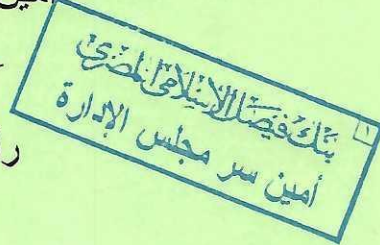 أمين
بنك فيصل الإسلامي المصري
١
أمين سر مجلس الإدارة